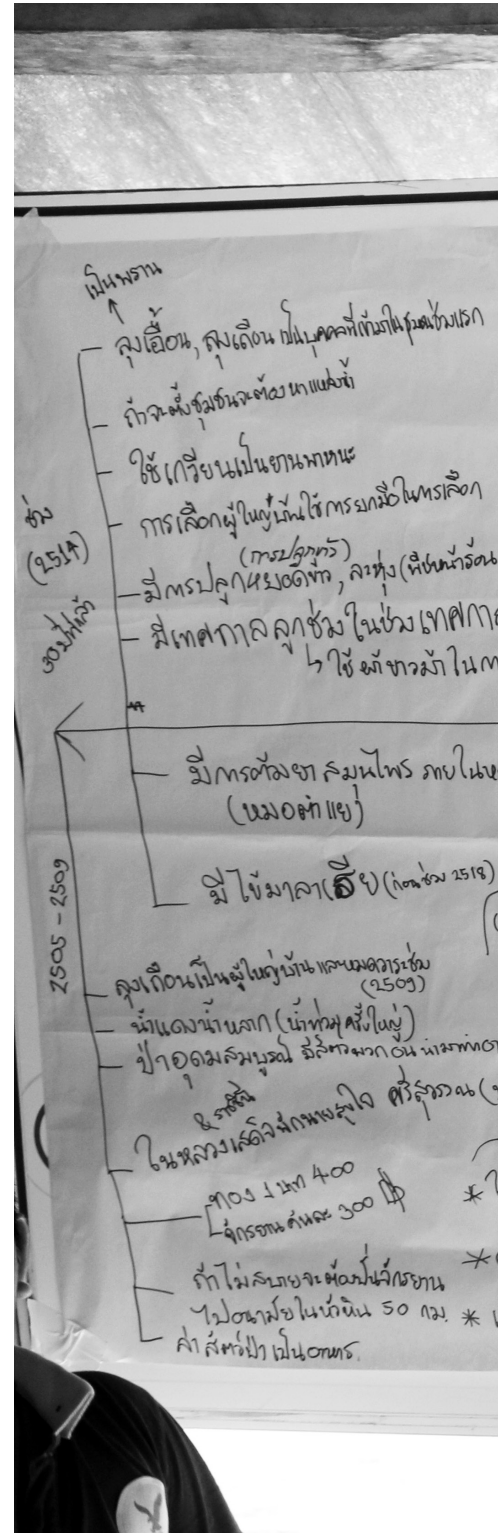 เป็นพราน
ลุงเอื้อน, ลุงเถือน เป็นบุคคลที่เข้ามาในชุมชนช่วงแรก
ถ้าจะตั้งชุมชนจะต้องหาแหล่งน้ำ
ใช้เกวียนเป็นยานพาหนะ
การเลือกผู้ใหญ่บ้านใช้การยกมือในการเลือก
ช่วง
(2514)
30 ปีที่แล้ว
มีการปลูกหยอดข้าว, ละหุ่ง (พืชหน้าร้อน
มีเทศกาลลูกช่วงในช่วงเทศกา
↳ ใช้ผ้าขาวม้าในกา
มีการต้มยา สมุนไพร ภายในห
(หมอตำแย)
มีไข้มาลาเรีย (ก่อนช่วง 2518)
2505 - 2509
ลุงเถือนเป็นผู้ใหญ่บ้านและหมดวาระช่วง
(2509)
น้ำแดงน้ำหลาก (น้ำท่วมครั้งใหญ่)
ป่าอุดมสมบูรณ์ มีสัตว์พวก
& ราชินี
ในหลวงเสด็จ
ทอง 1 บาท 400
จักรยานคันละ 300 ฿
ถ้าไม่สบายจะต้องปั่นจักรยาน
ไปอนามัยในหัวหิน 50 กม.
ล่าสัตว์ป่าเป็นอาหาร.